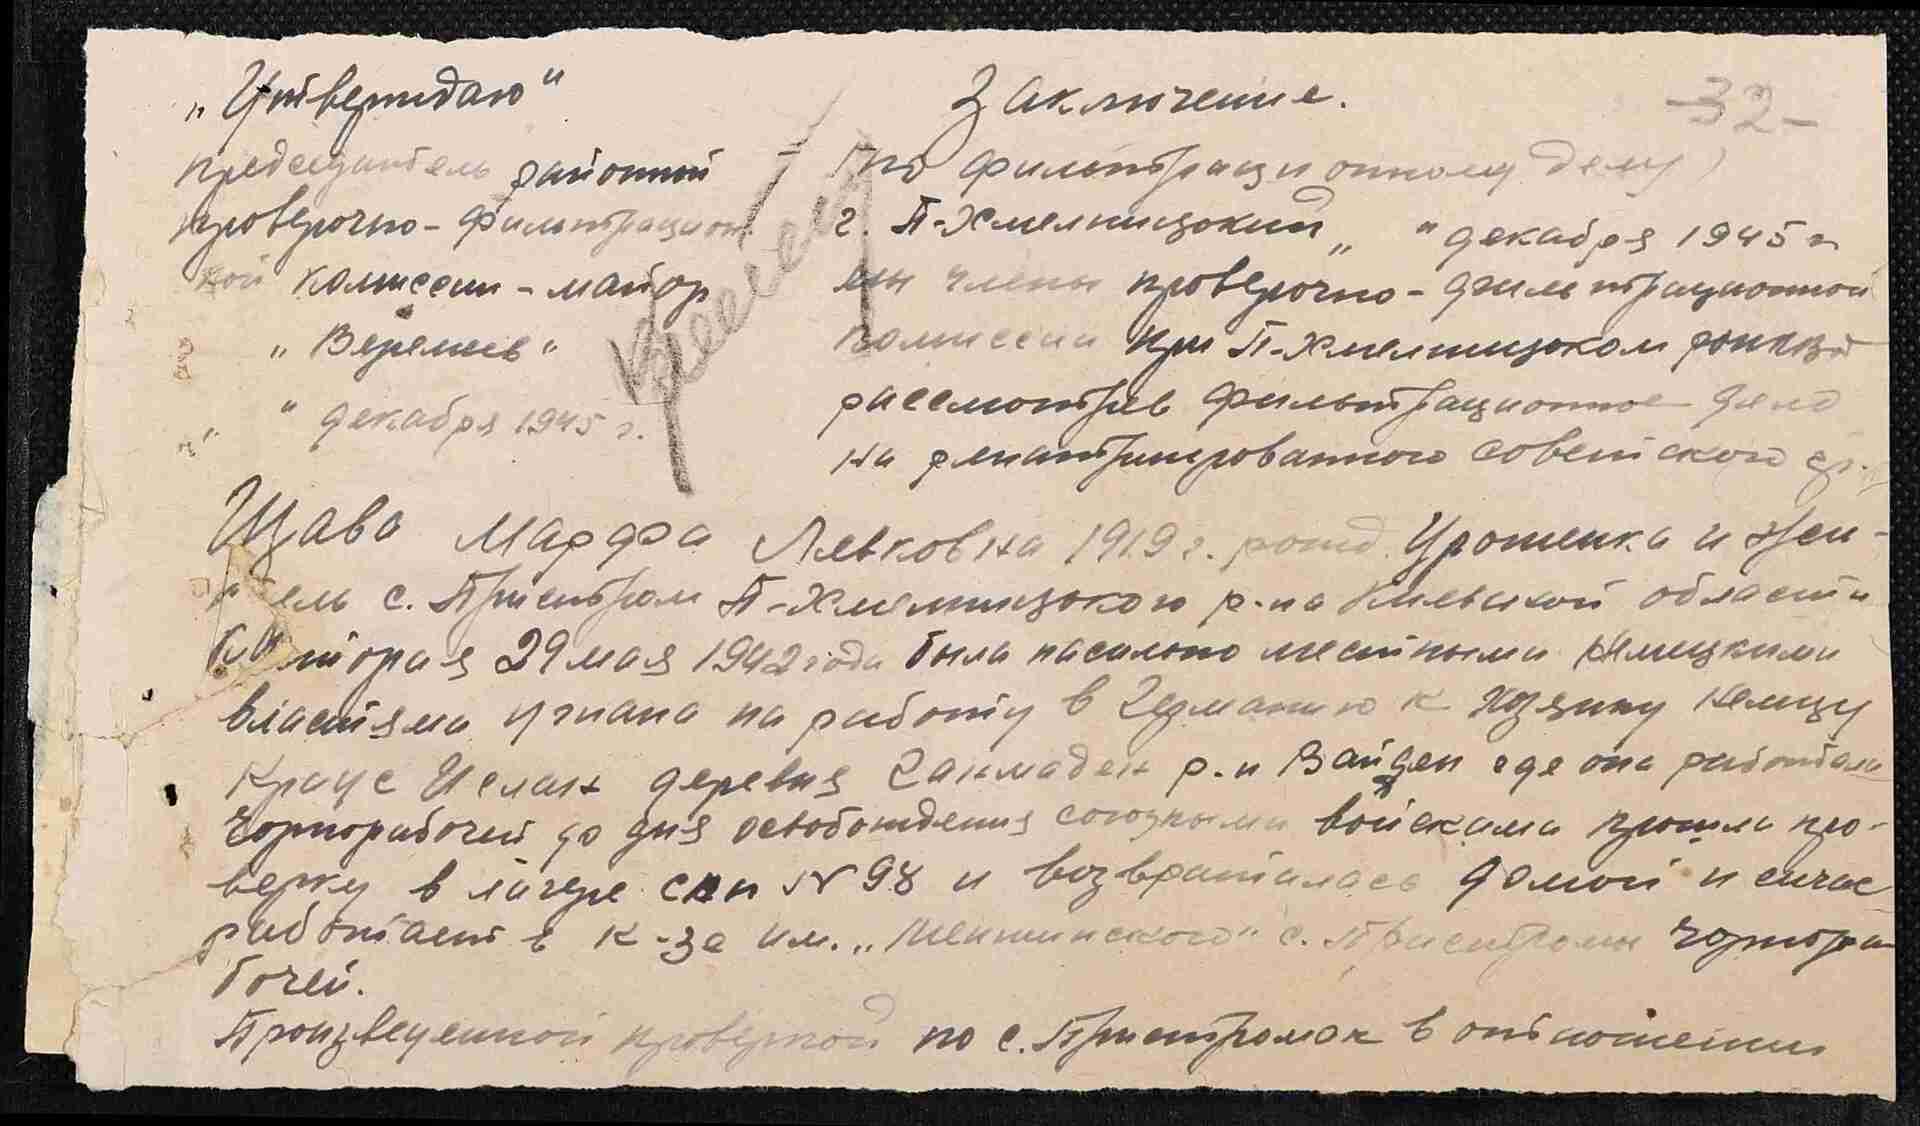 „Утверждаю“
председатель районной
проверочно-фильтрацион
ной комиссии - майор
„Веремеев“
„ декабря 1945 г.
Заключение.
-32-
(по фильтрационному делу)
г. П-Хмелницкий „ “ декабря 1945 г
мы члены проверочно-фильтрационной
комиссии при П-Хмелницком
рассмотрев фильтрационное дело
на репатриированного советского гр.
Щава Марфа Левковна 1919 г. рожд. Уроженка и жи-
тель с. Пристром П-Хмелницкого р-на Киевской области
которая 29 мая 1942 года была насильно местными немецкими
властями угнана на работу в Германию к хозяину немцу
Краус деревня р-н Вайден где она работала
чорнорабочей до дня освобождения союзными войсками прошла про-
верку в лагере спп N 98 и возвратилась домой и сичас
работает в к-зе им. „Менжинского“ с. Пристромы чорнора-
бочей.
Произведенной проверкой по с. Пристромах в отношении